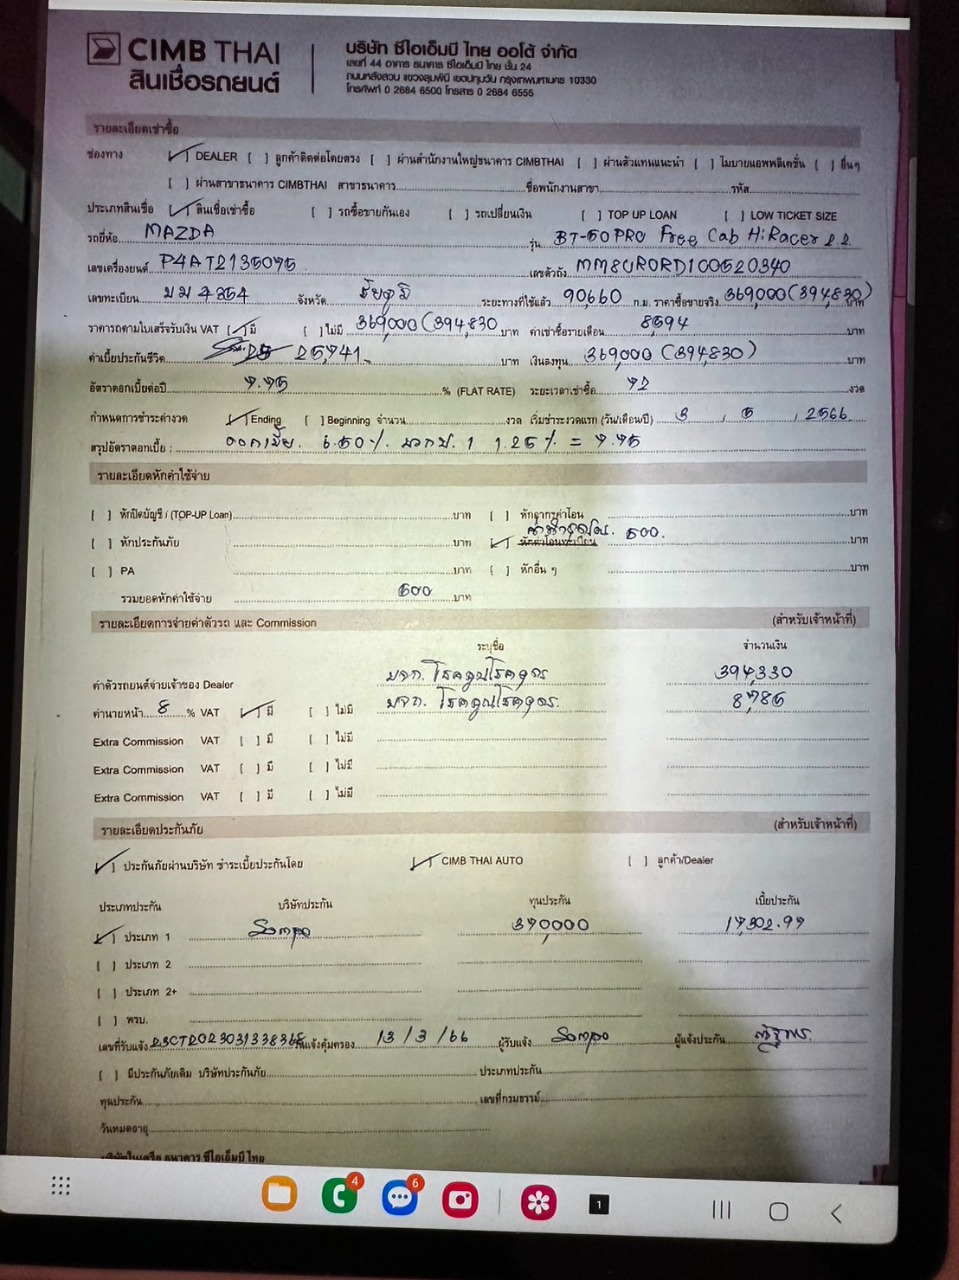 CIMB THAI
สินเชื่อรถยนต์
บริษัท ซีไอเอ็มบี ไทย ออโต้ จำกัด
เลขที่ 44 อาคาร ธนาคาร ซีไอเอ็มบี ไทย ชั้น 24
ถนนหลังสวน แขวงลุมพินี เขตปทุมวัน กรุงเทพมหานคร 10330
โทรศัพท์ 0 2684 6500 โทรสาร 0 2684 6555
รายละเอียดเช่าซื้อ
ช่องทาง [✓] DEALER [ ] ลูกค้าติดต่อโดยตรง [ ] ผ่านสำนักงานใหญ่ธนาคาร CIMBTHAI [ ] ผ่านตัวแทนแนะนำ [ ] โมบายแอพพลิเคชั่น [ ] อื่นๆ
[ ] ผ่านสาขาธนาคาร CIMBTHAI สาขาธนาคาร ชื่อพนักงานสาขา รหัส
ประเภทสินเชื่อ [✓] สินเชื่อเช่าซื้อ [ ] รถซื้อขายกันเอง [ ] รถเปลี่ยนเงิน [ ] TOP UP LOAN [ ] LOW TICKET SIZE
รถยี่ห้อ MAZDA รุ่น BT-50 PRO Free Cab Hi Racer 2.2
เลขเครื่องยนต์ P4AT2135095 เลขตัวถัง MM8UR0RD100520340
เลขทะเบียน จังหวัด ชัยภูมิ ระยะทางที่ใช้แล้ว 90660 ก.ม. ราคาซื้อขายจริง 369,000 (394,830) บาท
ราคารถตามใบเสร็จรับเงิน VAT [✓] มี [ ] ไม่มี 369,000 (394,830 บาท ค่าเช่าซื้อรายเดือน 8594 บาท
ค่าเบี้ยประกันชีวิต 25,741 บาท เงินลงทุน 369,000 (394,830) บาท
อัตราดอกเบี้ยต่อปี 7.75 % (FLAT RATE) ระยะเวลาเช่าซื้อ 72 งวด
กำหนดการชำระค่างวด [✓] Ending [ ] Beginning จำนวน งวด เริ่มชำระงวดแรก (วัน/เดือน/ปี) 3 / 5 / 2566
สรุปอัตราดอกเบี้ย : ดอกเบี้ย. 6.50 % บวก ป.1 1.25 % = 7.75
รายละเอียดหักค่าใช้จ่าย
[ ] หักปิดบัญชี / (TOP-UP Loan) บาท [ ] หักอากรค่าโอน บาท
[ ] หักประกันภัย บาท [✓] หักค่าโอนทะเบียน 500. บาท
[ ] PA บาท [ ] หักอื่น ๆ บาท
รวมยอดหักค่าใช้จ่าย 500 บาท
รายละเอียดการจ่ายค่าตัวรถ และ Commission (สำหรับเจ้าหน้าที่)
ระบุชื่อ จำนวนเงิน
ค่าตัวรถยนต์จ่ายเจ้าของ Dealer 394,330
ค่านายหน้า 8 % VAT [✓] มี [ ] ไม่มี 8,785
Extra Commission VAT [ ] มี [ ] ไม่มี
Extra Commission VAT [ ] มี [ ] ไม่มี
Extra Commission VAT [ ] มี [ ] ไม่มี
รายละเอียดประกันภัย (สำหรับเจ้าหน้าที่)
[✓] ประกันภัยผ่านบริษัท ชำระเบี้ยประกันโดย [✓] CIMB THAI AUTO [ ] ลูกค้า/Dealer
ประเภทประกัน บริษัทประกัน ทุนประกัน เบี้ยประกัน
[✓] ประเภท 1 370,000 17,302.97
[ ] ประเภท 2
[ ] ประเภท 2+
[ ] พรบ.
เลขที่รับแจ้ง วันแจ้งคุ้มครอง 13 / 3 / 66 ผู้รับแจ้ง ผู้แจ้งประกัน
[ ] มีประกันภัยเดิม บริษัทประกันภัย ประเภทประกัน
ทุนประกัน เลขที่กรมธรรม์
วันหมดอายุ
บริษัทในเครือ ธนาคาร ซีไอเอ็มบี ไทย
4
6
1